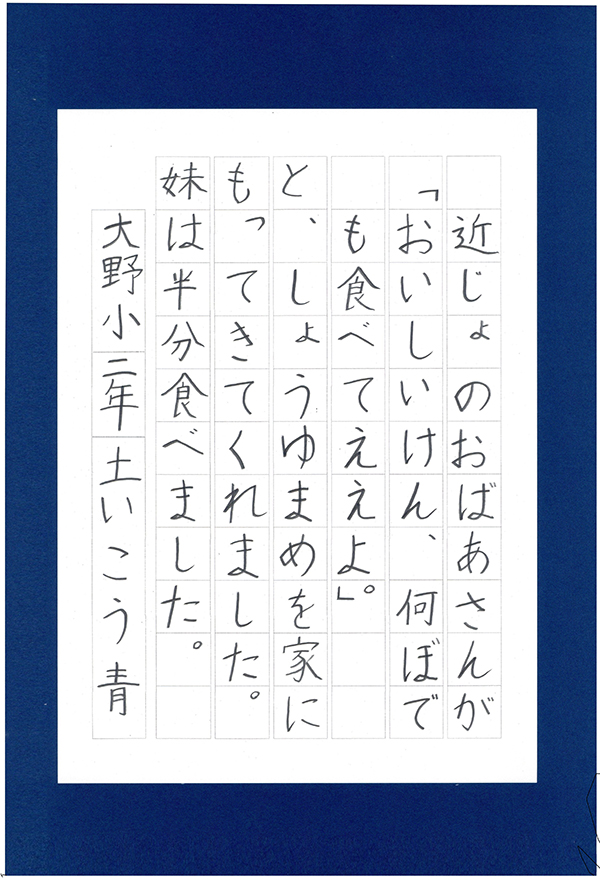 近じょのおばあさんが
「おいしいけん、何ぼで
も食べてええよ」。
と、しょうゆまめを家に
もってきてくれました。
妹は半分食べました。
大野小二年土いこう青